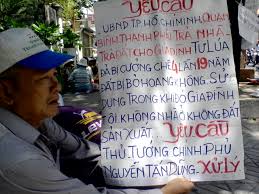 YÊU CẦU
UBND TP HỒ CHÍ MINH, QUẬN
BÌNH THẠNH PHẢI TRẢ NHÀ
TRẢ ĐẤT CHO GIA ĐÌNH TÔI
ĐÃ BỊ CƯỠNG CHẾ 4 LẦN 19
ĐẤT BỊ BỎ HOANG KHÔNG SỬ
DỤNG TRONG KHI ĐÓ GIA ĐÌNH
TÔI KHÔNG NHÀ KHÔNG ĐẤT
SẢN XUẤT. YÊU CẦU
THỦ TƯỚNG CHÍNH PHỦ
NGUYỄN TẤN DŨNG XỬ LÝ